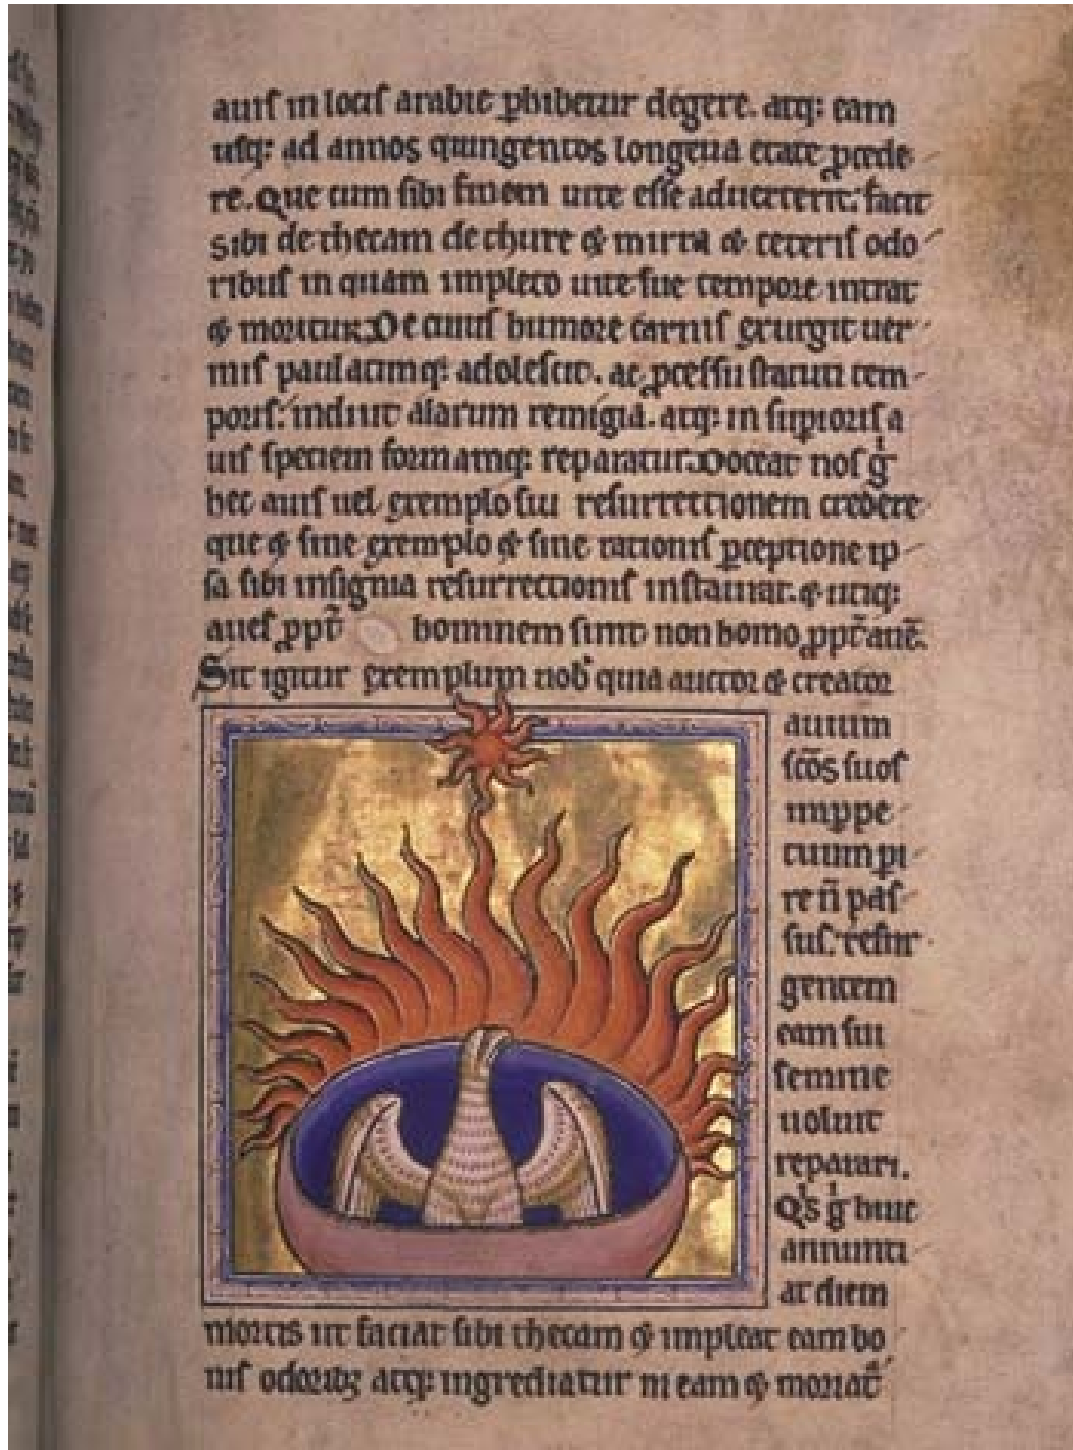 auis in locis arabie phibetur degere. atq: eam
usq: ad annos quingentos longeua etate pcede
re. Que cum sibi finem uite esse aduerterit: facit
sibi de thecam de thure & mirra & ceteris odo
ribus in quam impleto uite sue tempore intrat
& moritur. De cuius humore carnis exurgit uer
mis paulatimq: adolescit. ac pcessu statuti tem
poris: induit alarum remigia. atq: in supioris a
uis speciem formamq: reparatur. Doceat nos gͥ
hec auis uel exemplo sui resurrectionem credere
que & sine exemplo & sine rationis pceptione ip
sa sibi insignia resurrectionis instaurat. & utiq:
aues ppt̄ hominem sunt non homo ppt̄ auē.
Sit igitur exemplum nob quia auctor & creator
auium
scōs suos
inppe
tuum pi
re n̄ pas
sus: resur
gentem
eam sui
semine
uoluit
reparari.
Qͥs gͥ huic
annunti
at diem
mortis ut faciat sibi thecam & impleat eam bo
nis odoribz atq: ingrediatur in eam & moriat᷑